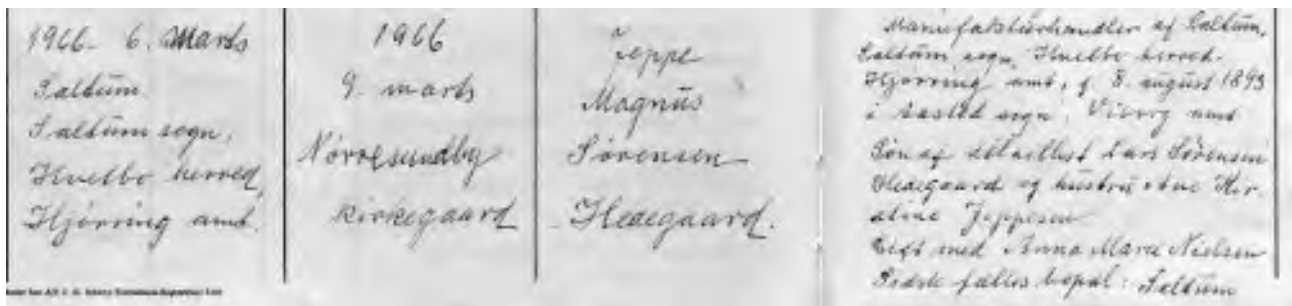 1966. 6. Marts
Saltum
Saltum sogn,
Hvetbo herred,
Hjørring amt.
1966
9. marts
Nørresundby
Kirkegaard
Jeppe
Magnus
Sørensen
Hedegaard.
Manufakturhandler af Saltum,
Saltum sogn, Hvetbo herred.
Hjørring amt, f. 8. august 1893
i sogn, Viborg amt
Søn af Lars Sørensen
Hedegaard og hustru Ane Kir-
stine Jeppesen
Gift med Anna Marie Nielsen
Sidste fælles bopæl: Saltum